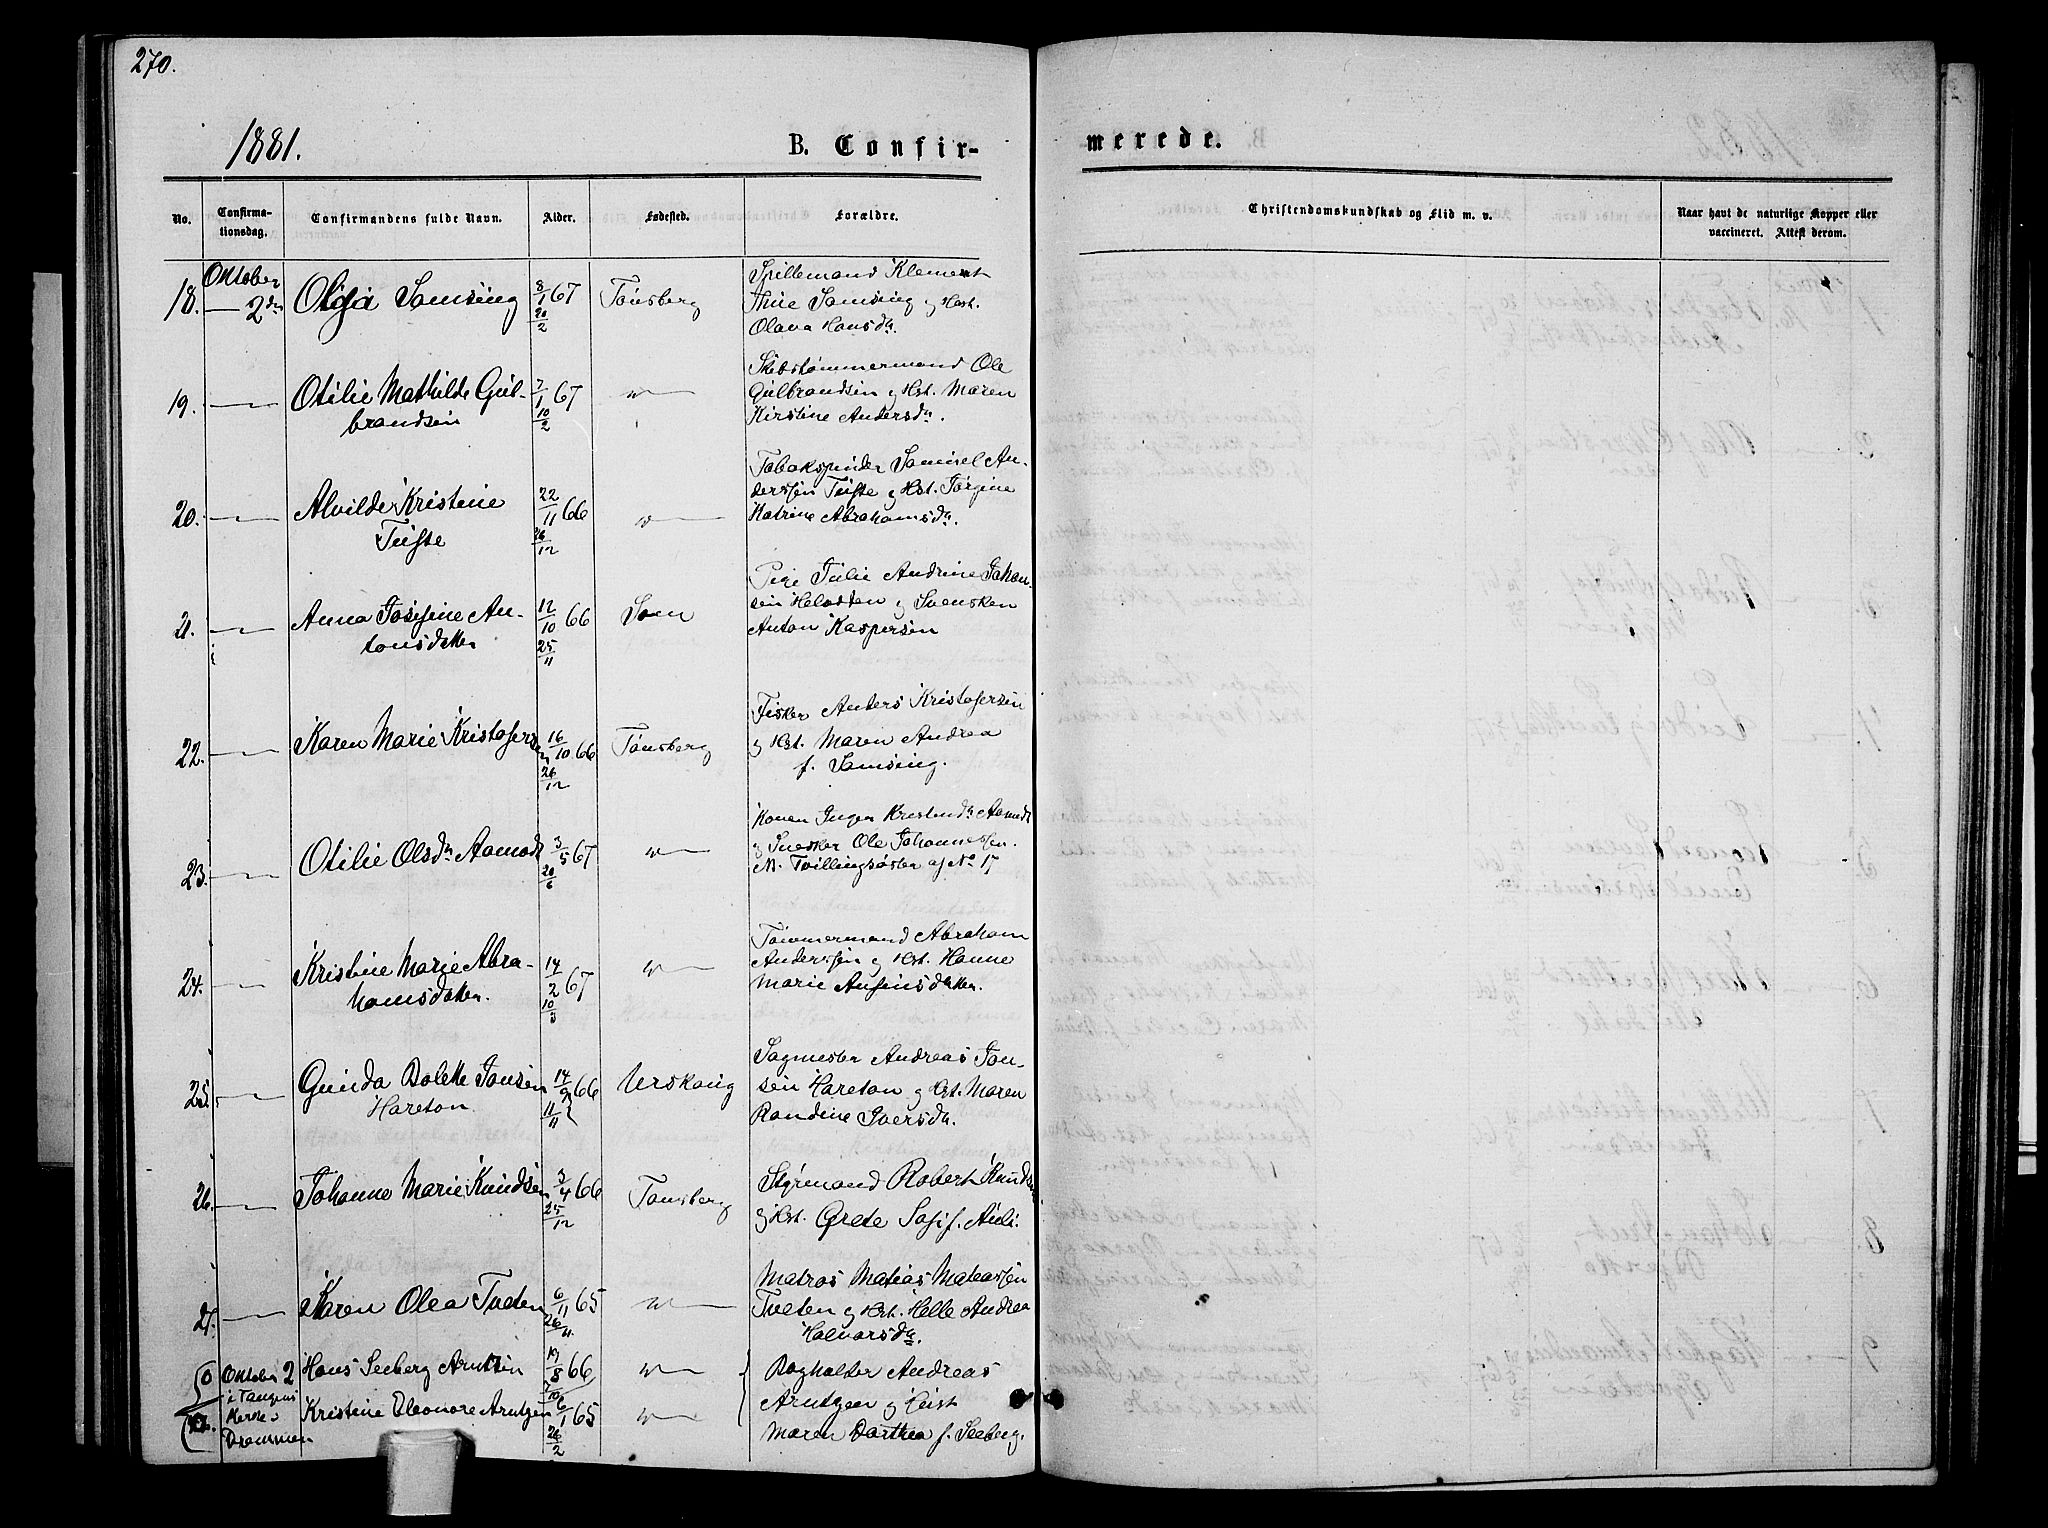 270.
1881.
B. Confir-
merede.
No.
Confirma-
tionsdag.
Confirmandens fulde Navn.
Alder.
Fødested.
Forældre.
Christendomskundskab og Flid m. v.
Naar havt de naturlige Kopper eller
vaccineret. Attest derom.
Oktober
18. — 2den Olga Samsing 8/1 67 20/2 Tønsberg
Spillemand Klement
Thue Samsing og Hst.
Olava Hansdtr.
19. — Otilie Mathilde Gul-
brandsen 7/1 67 10/2 "
Skibstømmermand Ole
Gulbrandsen og Hst. Maren
Kirstine Andersdtr.
20. — Alvilde Kristine
Tufte 22/11 66 26/12 "
Tobakspinder Samuel An-
derssen Tufte og Hst. Jørgine
Katrine Abrahamsdtr.
21. — Anna Josefine An-
tonsdatter 12/10 66 25/11 Sem
Pige Julie Andrine Johan-
sen og Svensken
Anton Kaspersen
22. — Karen Marie Kristofersen 16/10 66 26/12 Tønsberg
Fisker Anders Kristofersen
og Hst. Maren Andrea
f. Samsing.
23. — Otilie Olsdtr Aamodt 3/5 67 20/6 "
Konen Inger Kristendtr Aamodt
og Snedker Ole Johannessen.
NB. Tvillingsøster af No 17
24. — Kristine Marie Abra-
hamsdatter. 14/2 67 10/3 "
Tømmermand Abraham
Anderssen og Hst. Hanne
Marie Ansteinsdatter.
25. — Gunda Bolette Jansen
Hareton 14/9 66 11/11 Urskoug
Sagmester Andreas Jan-
sen Hareton og Hst. Maren
Randine Iversdtr.
26. — Johanne Marie Knudsen 3/4 66 25/12 Tønsberg
Styrmand Robert Knudsen
og Hst. Grete Sofi f. Auli.
27. — Karen Olea Tveten 6/11 65 26/11 "
Matros Matias Mateassen
Tveten og Hst. Helle Andrea
Halvorsdtr.
0 Oktober 2 Hans Seeberg Arntzen 19/8 66 "
i Tangens
Kirke i
Drammen
Kristine Eleonore Arntzen 6/1 65 26/2 "
Bogholder Andreas
Arntzen og Hst
Maren Dorthea f. Seeberg.